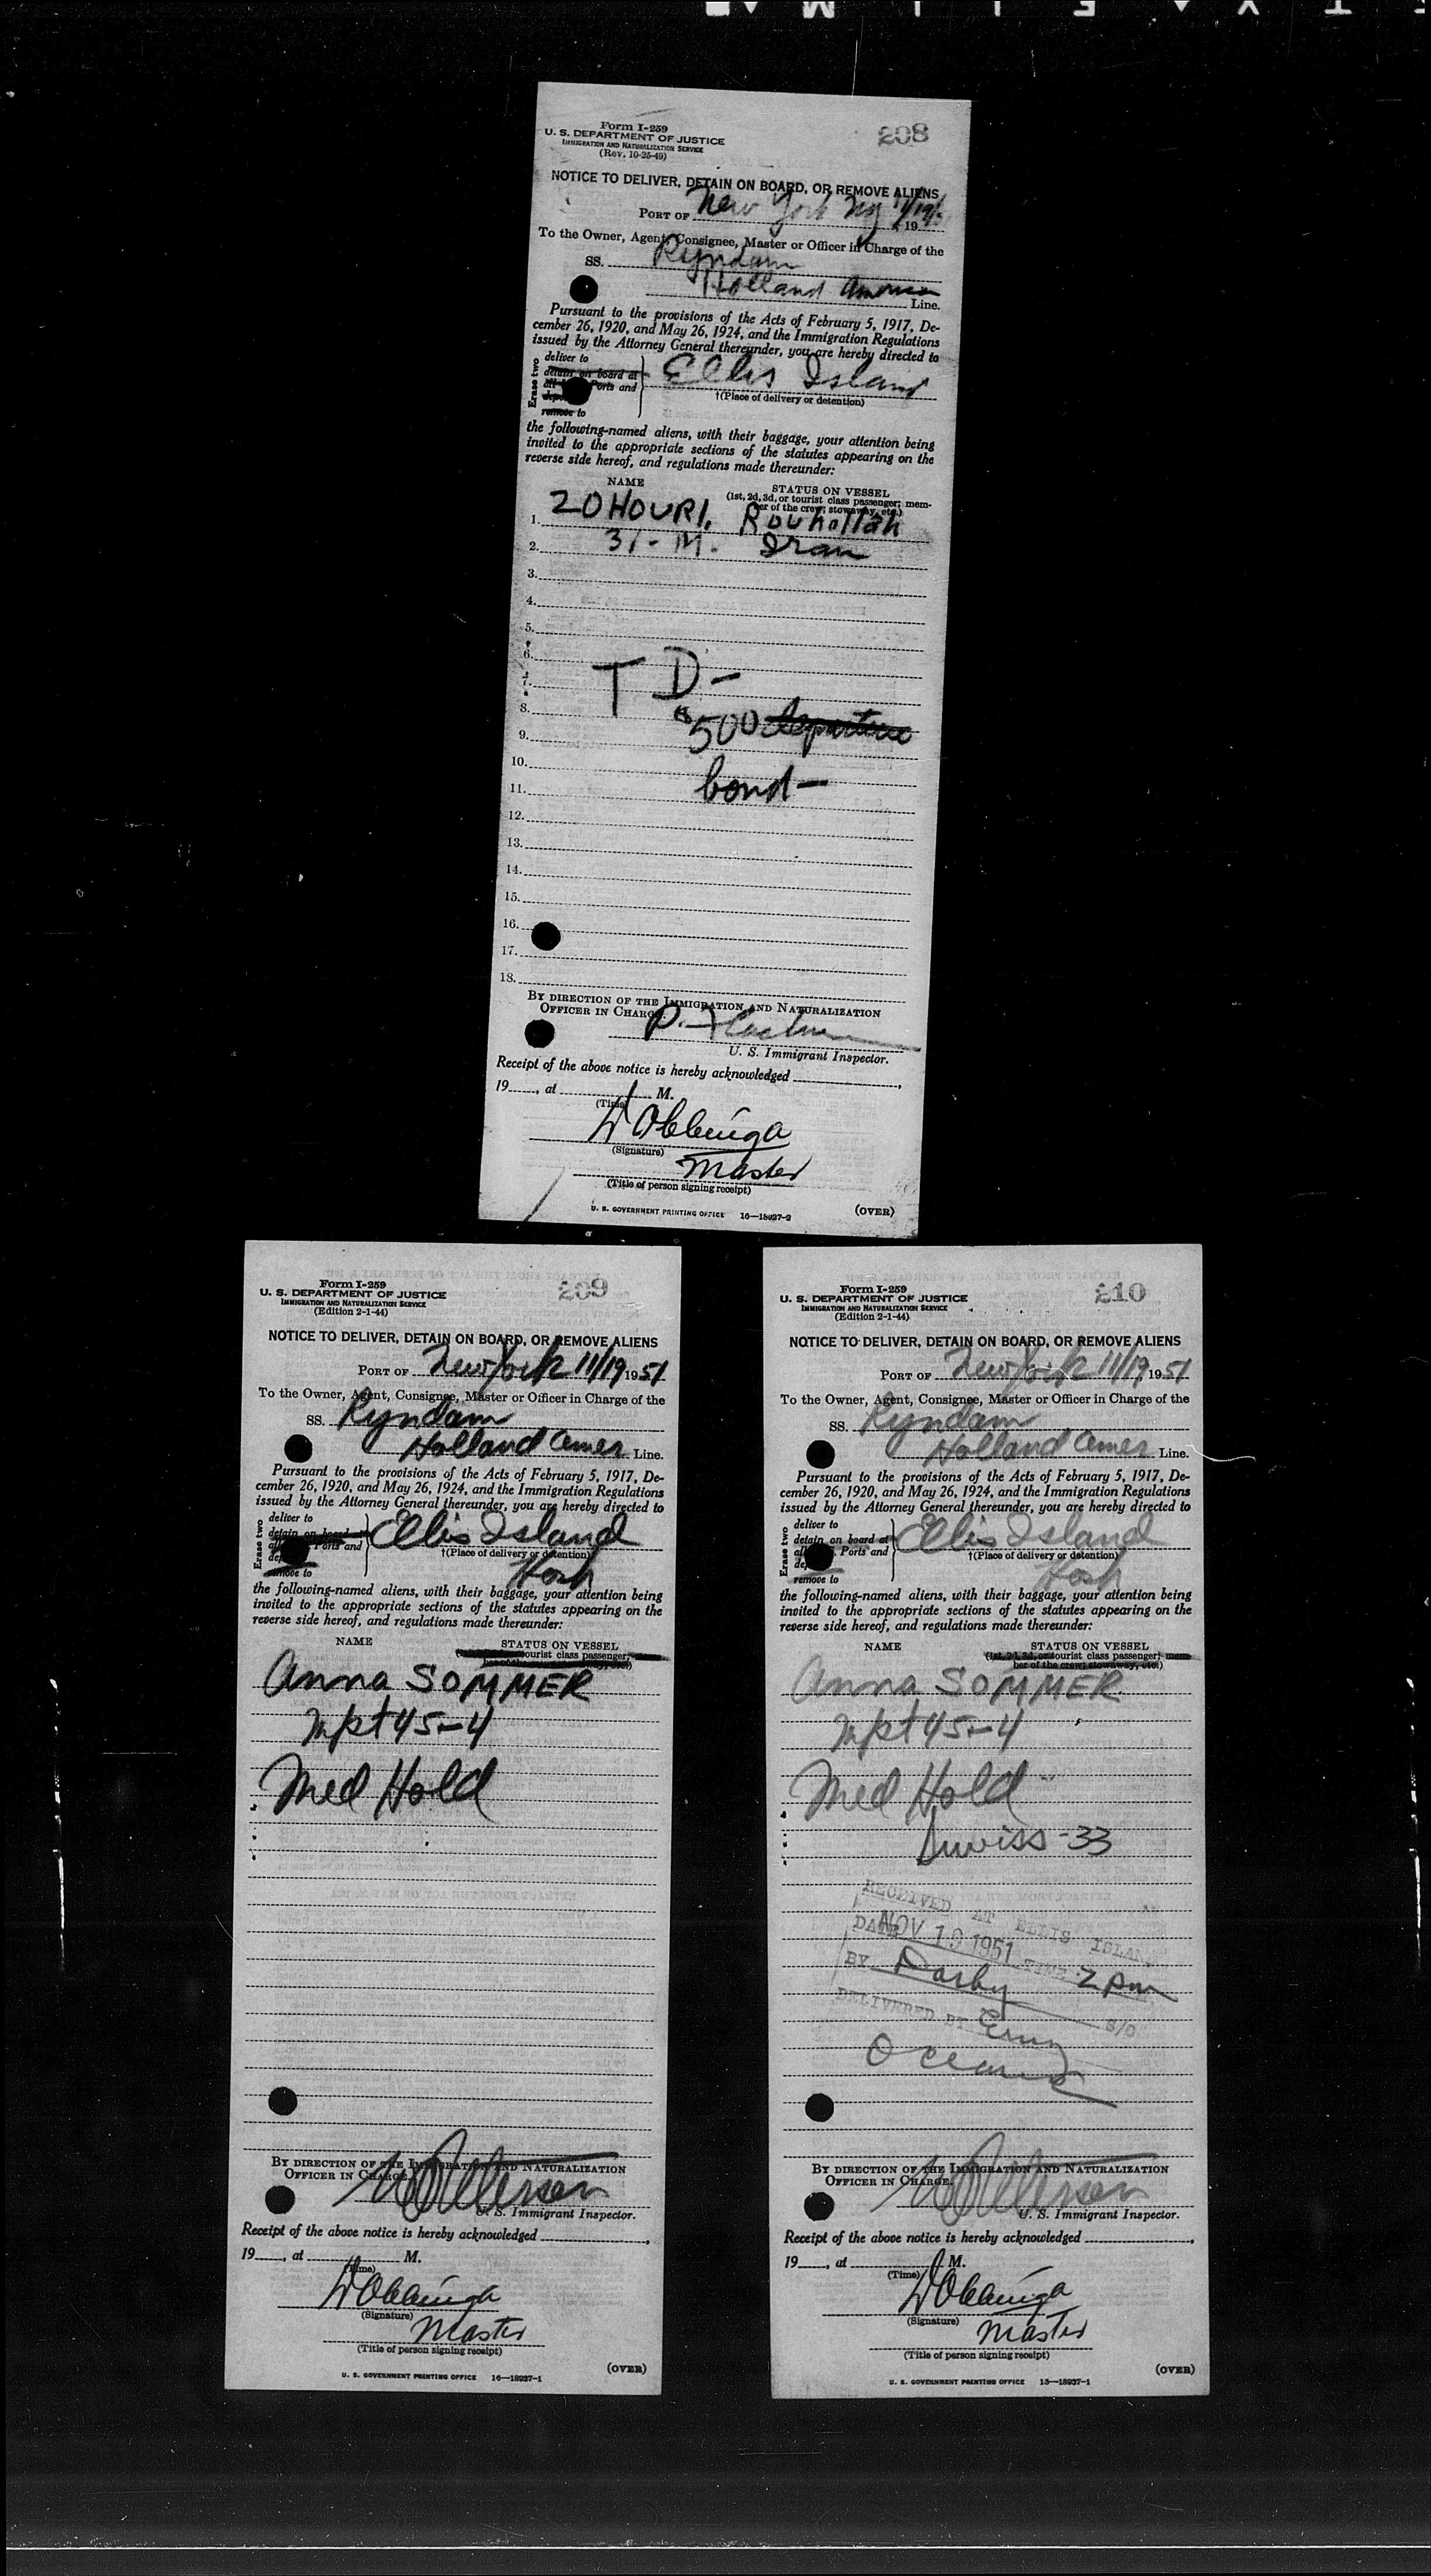 Form I-259
208
U. S. DEPARTMENT OF JUSTICE
IMMIGRATION AND NATURALIZATION SERVICE
(Rev. 10-25-49)
NOTICE TO DELIVER, DETAIN ON BOARD, OR REMOVE ALIENS
PORT OF New York Ny 11/19/, 19
To the Owner, Agent, Consignee, Master or Officer in Charge of the
SS. Ryndam
Holland America Line.
Pursuant to the provisions of the Acts of February 5, 1917, De-
cember 26, 1920, and May 26, 1924, and the Immigration Regulations
issued by the Attorney General thereunder, you are hereby directed to
Erase two
deliver to
detain on board at
all Ports and
remove to
Ellis Island
†(Place of delivery or detention)
the following-named aliens, with their baggage, your attention being
invited to the appropriate sections of the statutes appearing on the
reverse side hereof, and regulations made thereunder:
NAME
STATUS ON VESSEL
(1st, 2d, 3d, or tourist class passenger; mem-
ber of the crew; stowaway, etc.)
1. ZOHOURI, Rouhollah
2. 31 - M. Iran
3.
4.
5.
6.
7. T D -
8. $500 departure
9.
10.
11. bond -
12.
13.
14.
15.
16.
17.
18.
BY DIRECTION OF THE IMMIGRATION AND NATURALIZATION
OFFICER IN CHARGE.
P.
U. S. Immigrant Inspector.
Receipt of the above notice is hereby acknowledged
19, at M.
(Time)
(Signature)
Master
(Title of person signing receipt)
U. S. GOVERNMENT PRINTING OFFICE 16—18927-2
(OVER)
Form I-259
209
U. S. DEPARTMENT OF JUSTICE
IMMIGRATION AND NATURALIZATION SERVICE
(Edition 2-1-44)
NOTICE TO DELIVER, DETAIN ON BOARD, OR REMOVE ALIENS
PORT OF New York 11/19 1951
To the Owner, Agent, Consignee, Master or Officer in Charge of the
SS. Ryndam
Holland Amer Line.
Pursuant to the provisions of the Acts of February 5, 1917, De-
cember 26, 1920, and May 26, 1924, and the Immigration Regulations
issued by the Attorney General thereunder, you are hereby directed to
Erase two
deliver to
detain on board
Ports and
remove to
Ellis Island
†(Place of delivery or detention)
Hosp
the following-named aliens, with their baggage, your attention being
invited to the appropriate sections of the statutes appearing on the
reverse side hereof, and regulations made thereunder:
NAME
STATUS ON VESSEL
tourist class passenger;
ber of the crew; stowaway, etc.)
Anna SOMMER
Mpt 45-4
Med Hold
BY DIRECTION OF THE IMMIGRATION AND NATURALIZATION
OFFICER IN CHARGE.
U. S. Immigrant Inspector.
Receipt of the above notice is hereby acknowledged
19, at M.
(Time)
(Signature)
Master
(Title of person signing receipt)
(OVER)
U. S. GOVERNMENT PRINTING OFFICE 16—18927-1
Form I-259
210
U. S. DEPARTMENT OF JUSTICE
IMMIGRATION AND NATURALIZATION SERVICE
(Edition 2-1-44)
NOTICE TO DELIVER, DETAIN ON BOARD, OR REMOVE ALIENS
PORT OF New York 11/19 1951
To the Owner, Agent, Consignee, Master or Officer in Charge of the
SS. Ryndam
Holland Amer Line.
Pursuant to the provisions of the Acts of February 5, 1917, De-
cember 26, 1920, and May 26, 1924, and the Immigration Regulations
issued by the Attorney General thereunder, you are hereby directed to
Erase two
deliver to
detain on board at
all Ports and
remove to
Ellis Island
†(Place of delivery or detention)
Hosp
the following-named aliens, with their baggage, your attention being
invited to the appropriate sections of the statutes appearing on the
reverse side hereof, and regulations made thereunder:
NAME
STATUS ON VESSEL
(1st, 2d, 3d, or tourist class passenger; mem-
ber of the crew; stowaway, etc.)
Anna SOMMER
Mpt 45-4
Med Hold
Swiss - 33
RECEIVED AT ELLIS ISLAND
DATE NOV 19 1951 TIME 2 pm
BY Darby
DELIVERED BY S/O
BY DIRECTION OF THE IMMIGRATION AND NATURALIZATION
OFFICER IN CHARGE.
U. S. Immigrant Inspector.
Receipt of the above notice is hereby acknowledged
19, at M.
(Time)
(Signature)
Master
(Title of person signing receipt)
(OVER)
U. S. GOVERNMENT PRINTING OFFICE 16—18927-1